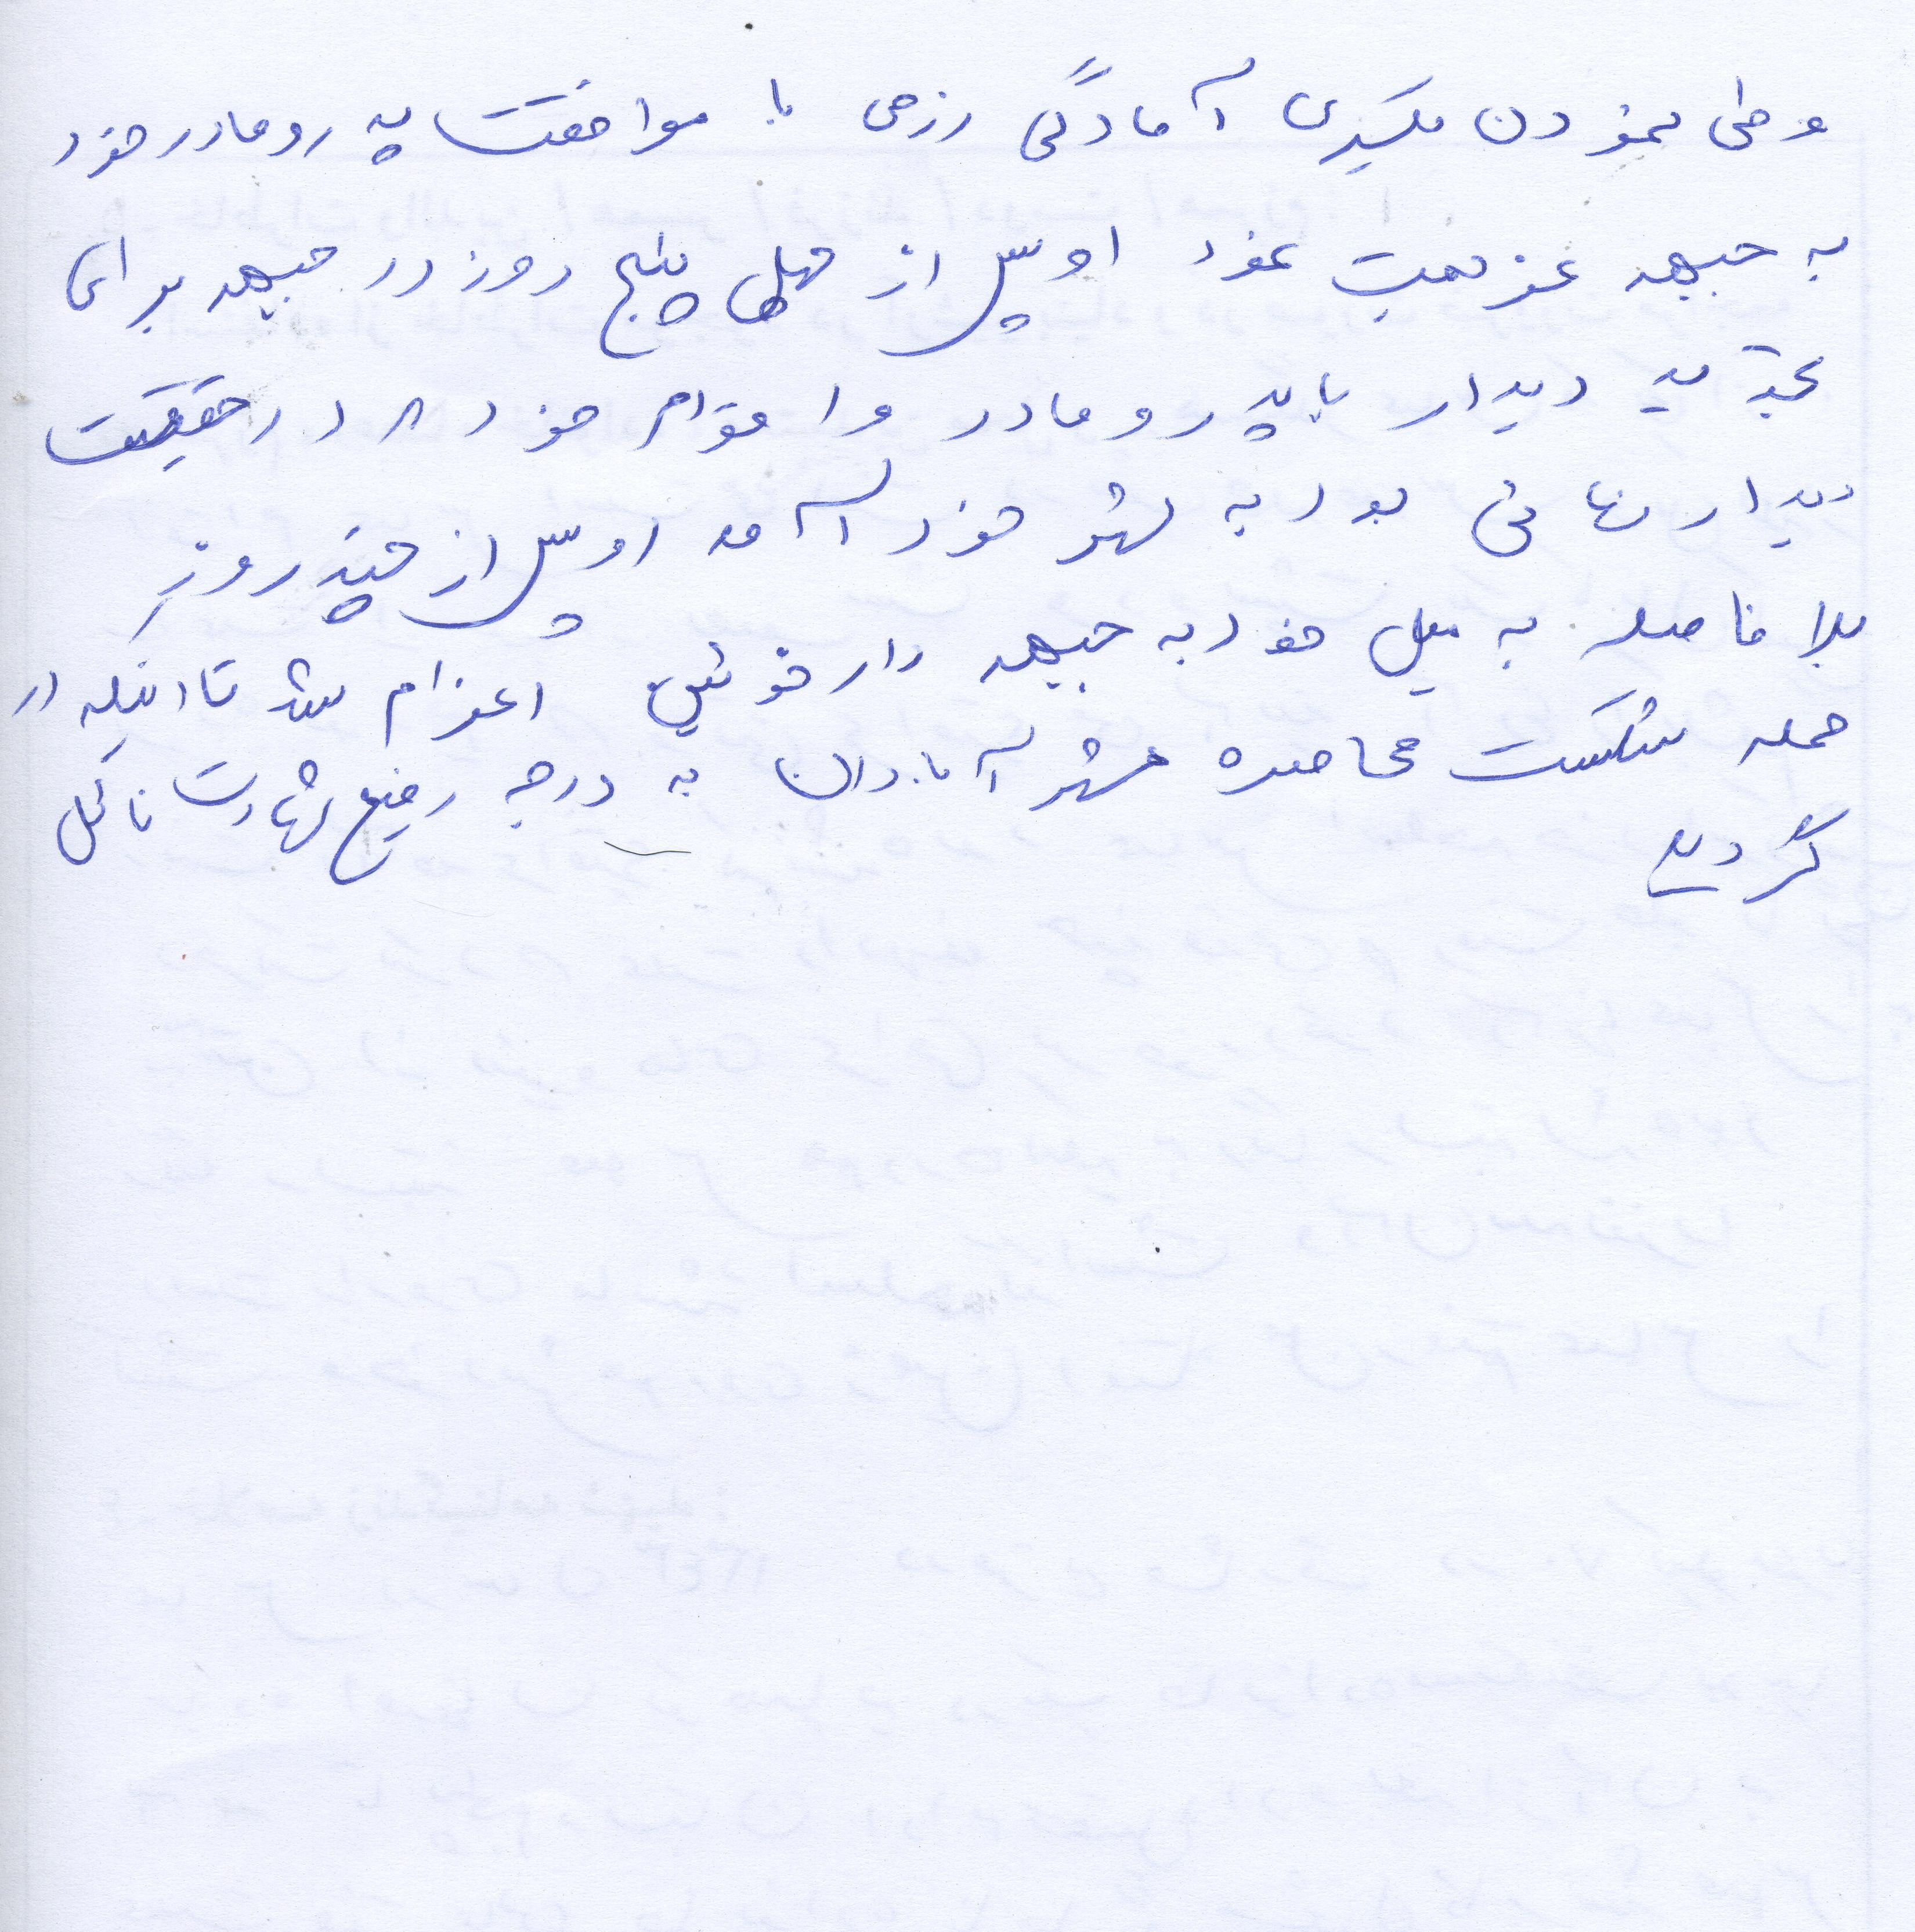 و طی نمودن یکسری آمادگی رزمی با موافقت پدر و مادر خود
به جبهه عزیمت نمود او پس از چهل پنج روز در جبهه برای
تجدید دیدار با پدر و مادر و اقوام خود در حقیقت
دیدار نهائی بود به شهر خود آمد او پس از چند روز
بلا فاصله به میل خود به جبهه دارخوئین اعزام شد تا اینکه در
حمله شکست محاصره شهر آبادان به درجه رفیع شهادت نائل
گردید